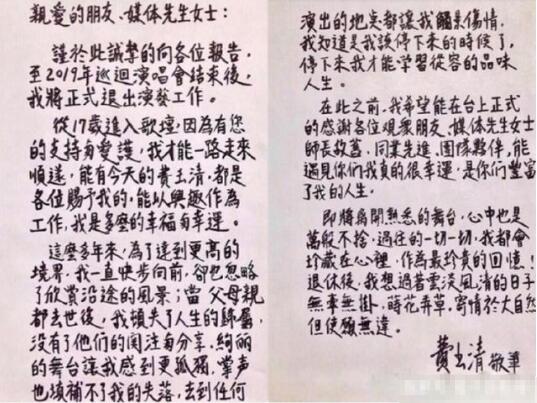 親愛的朋友、媒体先生女士:
謹於此誠摯的向各位報告,
至2019年巡迴演唱會結束後,
我將正式退出演藝工作。
從17歲進入歌壇,因為有您
的支持與愛護,我才能一路走來
順遂,能有今天的費玉清,都是
各位賜予我的,能以興趣作為
工作,我是多麼的幸福與幸運。
這麼多年來,為了達到更高的
境界,我一直快步向前,卻也忽略
了欣賞沿途的風景;當父母親
都去世後,我頓失了人生的歸屬,
沒有了他們的關注與分享,絢麗
的舞台讓我感到更孤獨,掌声
也填補不了我的失落,去到任何
演出的地点都讓我觸景傷情,
我知道是我該停下來的時候了,
停下來我才能学習從容的品味
人生。
在此之前,我希望能在台上正式
的感謝各位观眾朋友、媒体先生女士
師長故舊、同業先進、團隊夥伴,能
遇見你們我真的很幸運,是你們豐富
了我的人生。
即將离開熟悉的舞台,心中也是
萬般不捨,過往的一切一切,我都會
珍藏在心裡,作為最珍貴的回憶!
退休後,我想過著雲淡風清的日子
無事無掛,蒔花弄草,寄情於大自然
但使願無違。
費玉清 敬筆